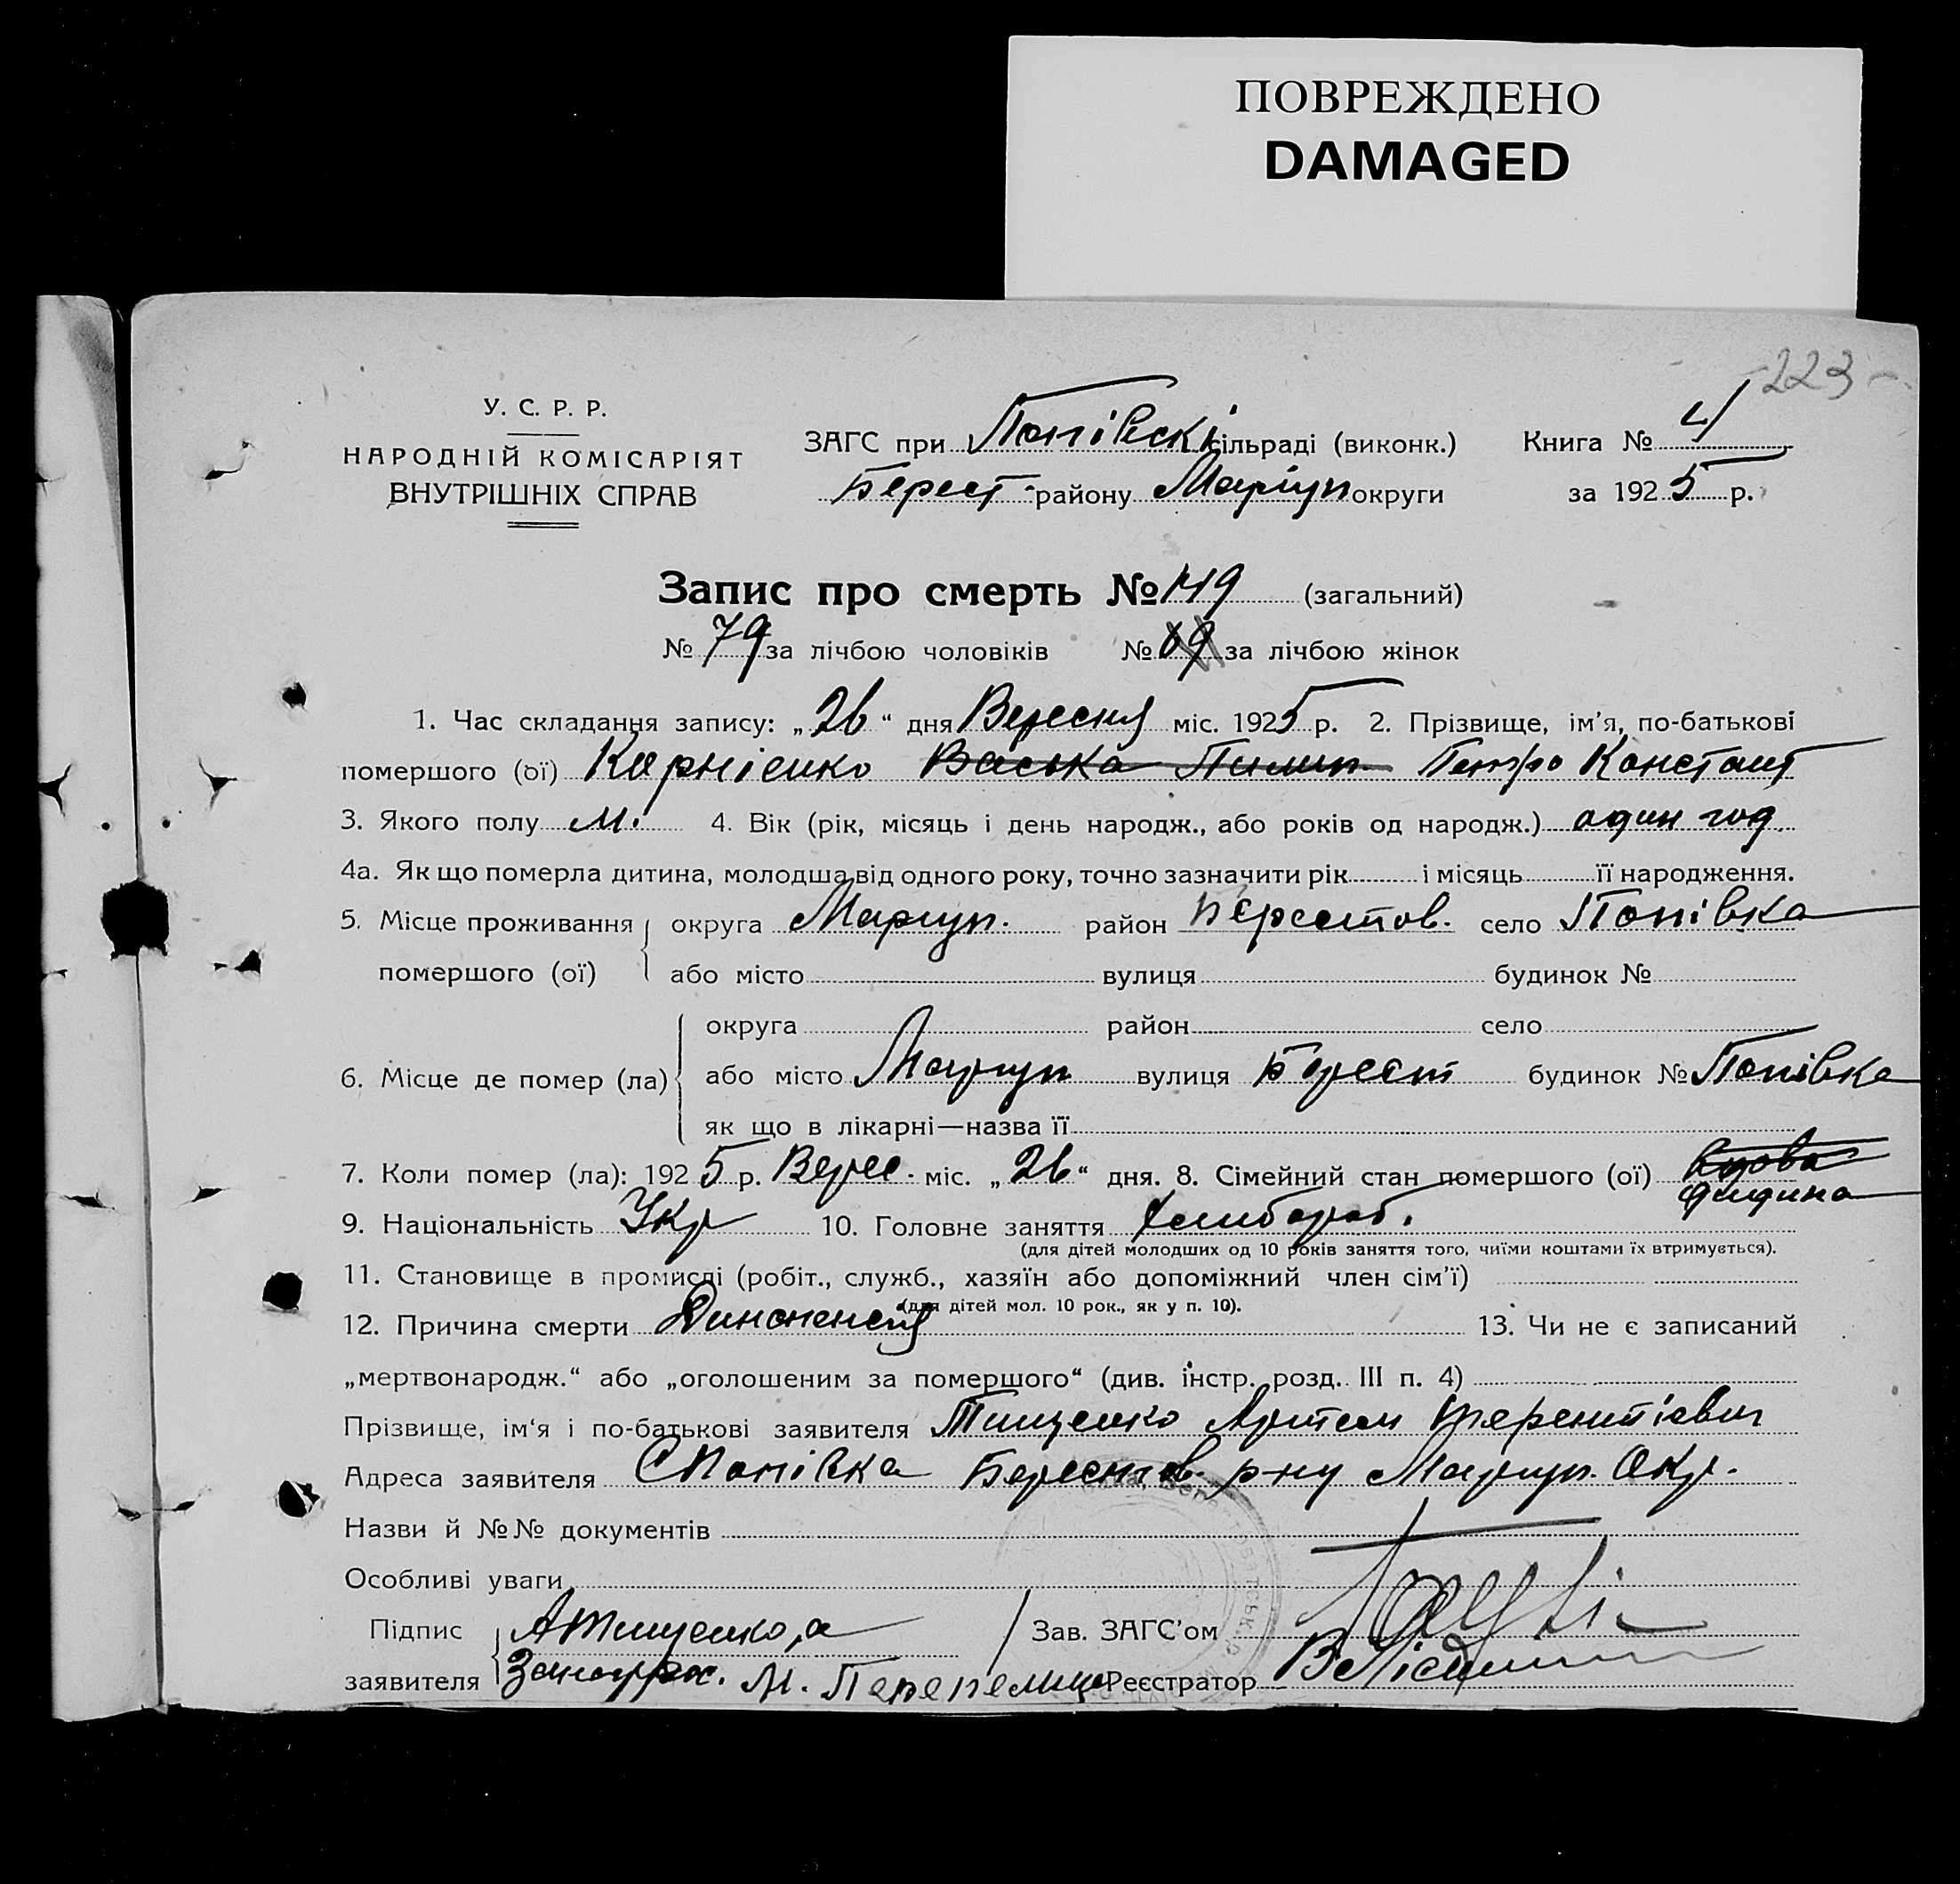 ПОВРЕЖДЕНО
DAMAGED
-223-
У. С. Р. Р.
НАРОДНІЙ КОМІСАРІЯТ
ВНУТРІШНІХ СПРАВ
ЗАГС при Попівскі сільраді (виконк.) Книга № 4
Берест. району Маріуп округи за 1925 р.
Запис про смерть № 149 (загальний)
№ 79 за лічбою чоловіків № 69 за лічбою жінок
1. Час складання запису: „26“ дня Вересня міс. 1925 р. 2. Прізвище, ім'я, по-батькові
помершого (ої) Корнієнко Васька Пилип Петро Констант
3. Якого полу м. 4. Вік (рік, місяць і день народж., або років од народж.) один год
4а. Як що померла дитина, молодша від одного року, точно зазначити рік і місяць її народження.
5. Місце проживання округа Маріуп. район Берестов. село Попівка
помершого (ої) або місто вулиця будинок №
округа район село
6. Місце де помер (ла) або місто Маріуп вулиця Берест будинок № Попівка
як що в лікарні—назва її
7. Коли помер (ла): 1925 р. Верес. міс. „26“ дня. 8. Сімейний стан помершого (ої) Вдова
дитина
9. Національність Укр 10. Головне заняття Хлибороб.
(для дітей молодших од 10 років заняття того, чиїми коштами їх втримується).
11. Становище в промислі (робіт., служб., хазяїн або допоміжний член сім'ї)
(для дітей мол. 10 рок., як у п. 10).
12. Причина смерти 13. Чи не є записаний
„мертвонародж.“ або „оголошеним за помершого“ (див. інстр. розд. III п. 4)
Прізвище, ім'я і по-батькові заявителя Тищенко Артем Терентієвич
Адреса заявителя С Попівка Берестов. р-ну Маріуп. Окр.
Назви й №№ документів
Особливі уваги
Підпис А Тищенко, а Зав. ЗАГС'ом
заявителя М. Перепелица Реєстратор